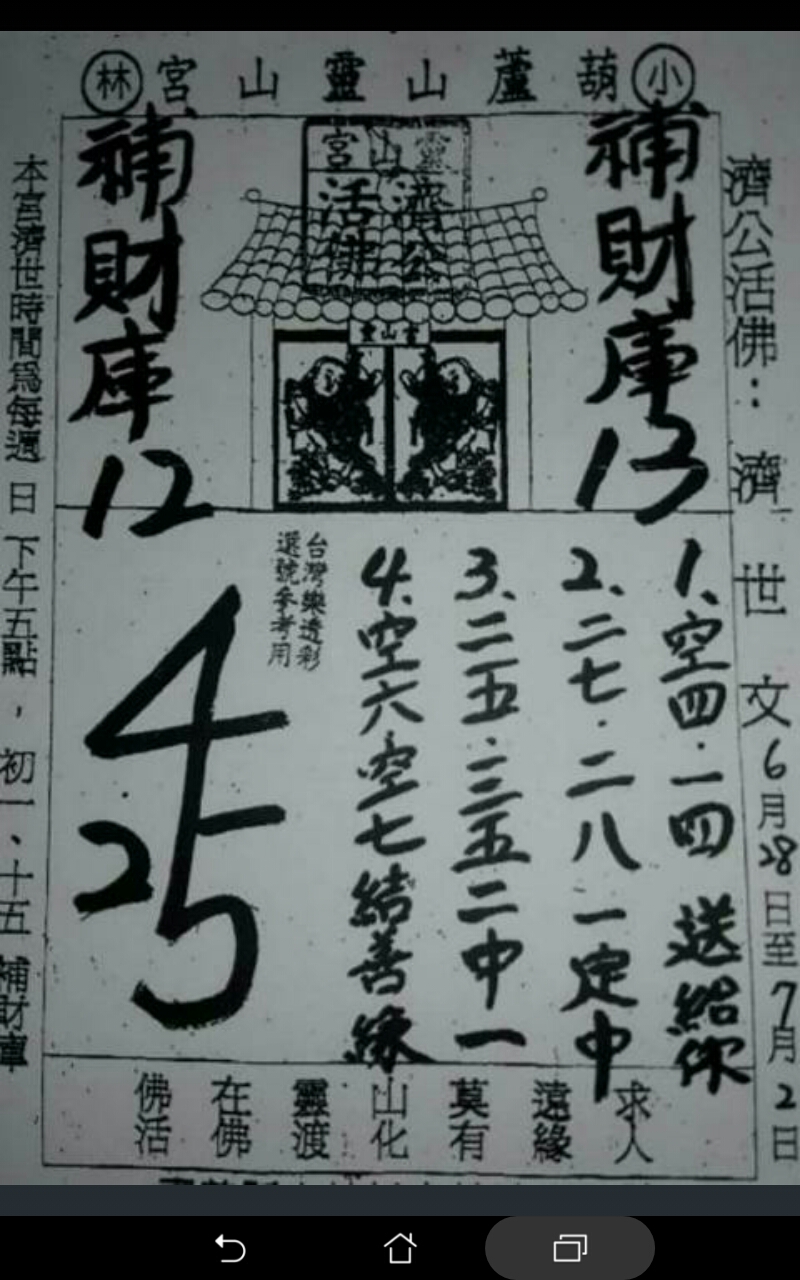 小葫蘆山靈山宮林
濟公活佛：濟世文6月28日至7月2日
補財庫13
靈山宮
濟公
活佛
靈山宮
補財庫12
1、空四．一四送給你
2、二七．二八一定中
3、二五．三五二中一
4、空六空七結善緣
台灣樂透彩
選號參考用
4
25
求人
遠緣
莫有
山化
靈渡
在佛
佛活
本宮濟世時間為每週日下午五點，初一、十五補財庫